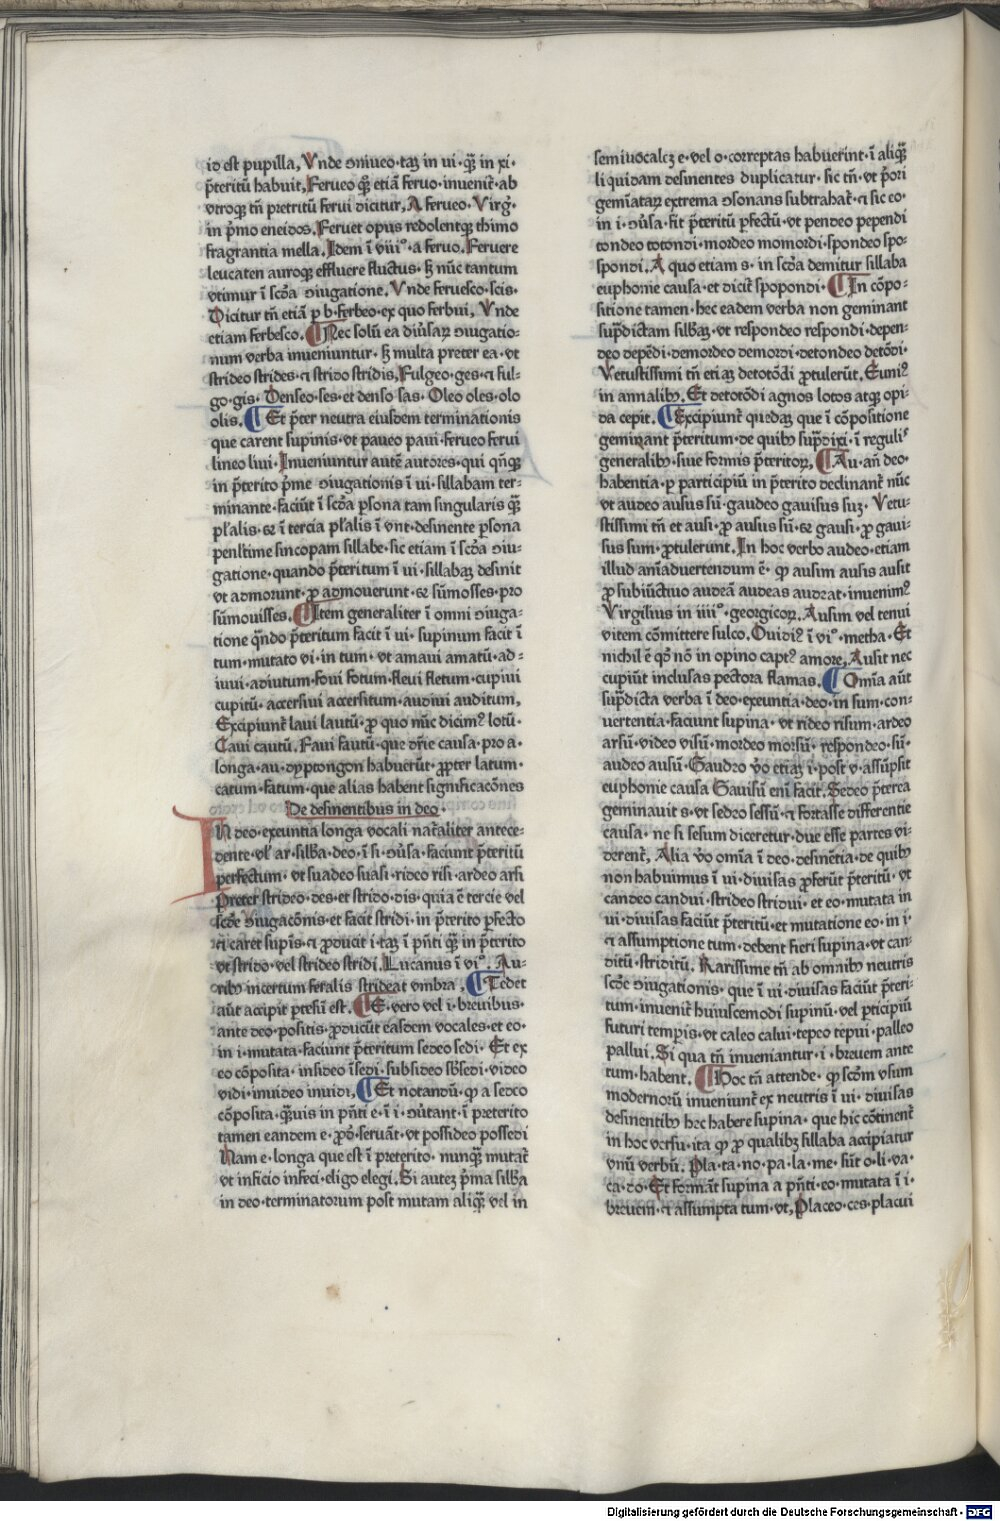 id est pupilla, Vnde ↄniueo·taꝫ in ui·qᷓ in xi·
p̄teritū habuit, Ferueo qͦꝫ etiā feruo·inuenit̄·ab
vtroqꝫ tn̄ pretritū ferui dicitur, A ferueo·Virgͥ·
in p̄mo eneidos, Feruet opus redolentqꝫ thimo
fragrantia mella. Idem ī viiiº·a feruo. Feruere
leucaten auroqꝫ effluere fluctus· sꝫ nūc tantum
vtimur ī scd̄a ↄiugatione. Vnde feruesco·scis·
Dicitur tn̄ etiā p b·ferbeo·ex quo ferbui, Vnde
etiam ferbesco. Nec solū ea diūsaꝝ ↄiugatio-
num verba inueniuntur· sꝫ multa preter ea·vt
strideo strides·⁊ strido stridis, Fulgeo·ges·⁊ ful-
go·gis· Denseo·ses·et denso·sas· Oleo oles·olo
olis. Et p̄ter neutra eiusdem terminationis
que carent supinis·vt paueo paui·ferueo ferui
lineo liui· Inueniuntur autē autores·qui qn̄qꝫ
in p̄terito p̄me ↄiugationis ī ui·sillabam ter-
minante·faciūt ī scd̄a ꝑsona tam singularis qᷓꝫ
pl'alis·⁊ ī tercia pl'alis ī vnt·desinente ꝑsona
penl̄time sincopam sillabe·sic etiam ī scd̄a ↄiu-
gatione·quando p̄teritum ī ui·sillabaꝫ desinit
vt admorunt·ꝓ admouerunt·⁊ sūmosses·pro
sūmouisses. Item generaliter ī omni ↄiuga-
tione qn̄do p̄teritum facit ī ui·supinum facit ī
tum·mutato vi·in tum·vt amaui amatū·ad-
iuui·adiutum·foui fotum·fleui fletum·cupiui
cupitū·accersiui accersitum·audiui auditum,
Excipiunt̄ laui lautū·ꝓ quo nūc dicimꝰ lotū·
Caui cautū. Faui fautū·que dr̄ie causa·pro a·
longa·au·dyptongon habuerūt·ꝓpter latum·
catum·fatum·que alias habent significacōnes
De desinentibus in deo·
In deo·exeuntia longa vocali nat̄aliter antece-
dente·vl' ar·sillb̄a·deo·ī si·ↄūsa·faciunt p̄teritū
perfectum·vt suadeo suasi·rideo risi·ardeo arsi
Preter strideo·des·et strido·dis·quia ē tercie vel
scd̄e ↄiugacōnis·et facit stridi·in p̄terito ꝑfecto
⁊ caret supīs·⁊ ꝓducit i·taꝫ ī pn̄ti qᷓꝫ in p̄terito
vt strido·vel strideo stridi. Lucanus ī viº. Au-
ribꝫ incertum feralis strideat vmbra, Tedet
aūt accipit ꝑtesū est. E·vero vel i·breuibus·
ante deo·positis·ꝓducūt easdem vocales·et eo·
in i·mutata·faciunt p̄teritum sedeo sedi· Et ex
eo cōposita·insideo īsedi·subsideo sb̄sedi·video
vidi·inuideo inuidi, Et notandū·ꝙ a sedeo
cōposita·qᷓuis in pn̄ti e·ī i·ↄūtant·ī preterito
tamen eandem e·ꝓd̄o·seruāt·vt possideo possedi
Nam e·longa que est ī preterito·nunqᷓꝫ mutat̄
vt inficio infeci·eligo elegi. Si autez p̄ma sillb̄a
in deo·terminatorum post mutam aliqᷓꝫ vel in
semiuocalcꝫ e·vel o·correptas habuerint·ī aliqᷓ
li quidam desinentes duplicatur·sic tn̄·vt p̄ori
gemīataꝝ extrema ↄsonans subtrahat̄·⁊ sic eo·
in i·ↄūsa·fit p̄teritū ꝑfectū·vt pendeo pependi
tondeo totondi·mordeo momordi·spondeo spo-
spondi. A quo etiam s·in scd̄a demitur sillaba
euphonie causa·et dicit̄ spopondi· In cōpo-
sitione tamen·hec eadem verba non geminant
supᷓdictam sillb̄aꝫ·vt respondeo respondi·depen-
deo depēdi·demordeo demordi·detondeo detōdi·
Vetustissimi tn̄ etiaꝫ detotōdi ꝓtulerūt. Euniꝰ
in annalibꝫ. Et detotōdi agnos lotos atqꝫ opi-
da cepit. Excipiunt̄ quedaꝫ que ī cōpositione
geminant p̄teritum·de quibꝫ supᷓdixi·ī reguliˢ
generalibꝫ·siue formis p̄teritoꝝ, Au·an̄ deo·
habentia·ꝑ participiū in p̄terito declinant̄ nūc
vt audeo ausus sū·gaudeo gauisus suꝫ· Vetu-
stissimi tn̄ et ausi·ꝓ ausus sū·⁊ gausi·ꝓ gaui-
sus sum·ꝓtulerunt. In hoc verbo audeo·etiam
illud aīaduertendum ē·ꝙ ausim ausis ausit
ꝓ subiūctiuo audeā audeas audeat·inuenimꝰ
Virgilius in iiiiº·georgicoꝝ. Ausim vel tenui
vitem cōmittere sulco. Ouidiꝰ ī viº·metha· Et
nichil ē qd̄ nō in opino captꝰ amore, Ausit nec
cupiūt inclusas pectora flamas. Om̄ia aūt
supᷓdicta verba ī deo·exeuntia·deo·in sum·con-
uertentia·faciunt supina·vt rideo risum·ardeo
arsū·video visū·mordeo morsū·respondeo·sū·
audeo ausū· Gaudeo v̄o etiaꝫ i·post v·assūpsit
euphonie causa Gauisū enī facit. Sedeo p̄terea
geminauit s·vt sedeo sessū·⁊ fortasse differentie
causa·ne si sesum diceretur·due esse partes vi-
derent̄, Alia v̄o om̄ia ī deo·desinētia·de quibꝫ
non habuimus ī ui·diuisas ꝓferūt p̄teritū·vt
candeo candui·strideo stridui·et eo·mutata in
ui·diuisas faciūt p̄teritū·et mutatione eo·in i·
⁊ assumptione tum·debent fieri supina·vt can-
ditū·striditū. Rarissime tn̄ ab omnibꝫ neutris
scd̄e ↄiugationis·que ī ui·diuisas faciūt p̄teri-
tum·inuenit̄ huiuscemodi supinū·vel ꝑticipiū
futuri tempis·vt caleo calui·tepeo tepui·palleo
pallui. Si qua tn̄ inueniantur·i·breuem ante
tum·habent. Hoc tn̄ attende·ꝙ scd̄m vsum
modernorū inueniunt̄ ex neutris ī ui·diuisas
desinentibꝫ hec habere supina·que hic cōtinent̄
in hoc versu·ita ꝙ ꝓ qualibꝫ sillaba accipiatur
vnū verbū. Pla·ta·no·pa·la·me·sūt·o·li·va·
ca·do· Et format̄ supina a pn̄ti·eo·mutata ī i·
breuem·⁊ assumpta tum·vt, Placeo·ces·placui
Digitalisierung gefördert durch die Deutsche Forschungsgemeinschaft - DFG